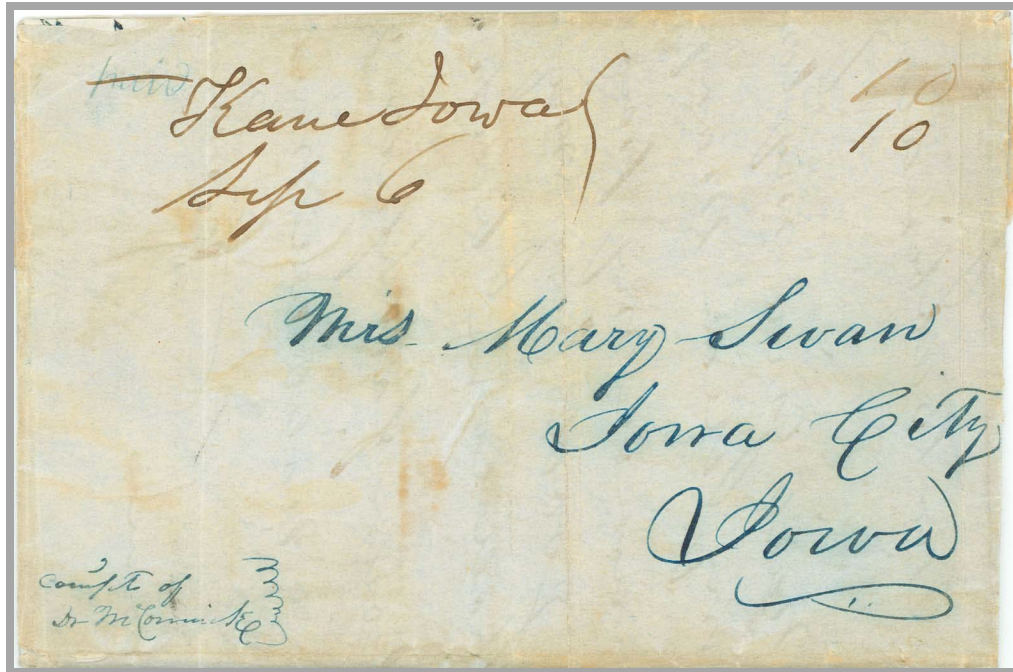 paid
Kane Iowa
10
Sep 6
10
Mrs. Mary Swan
Iowa City
Iowa
of
Dr McCormick